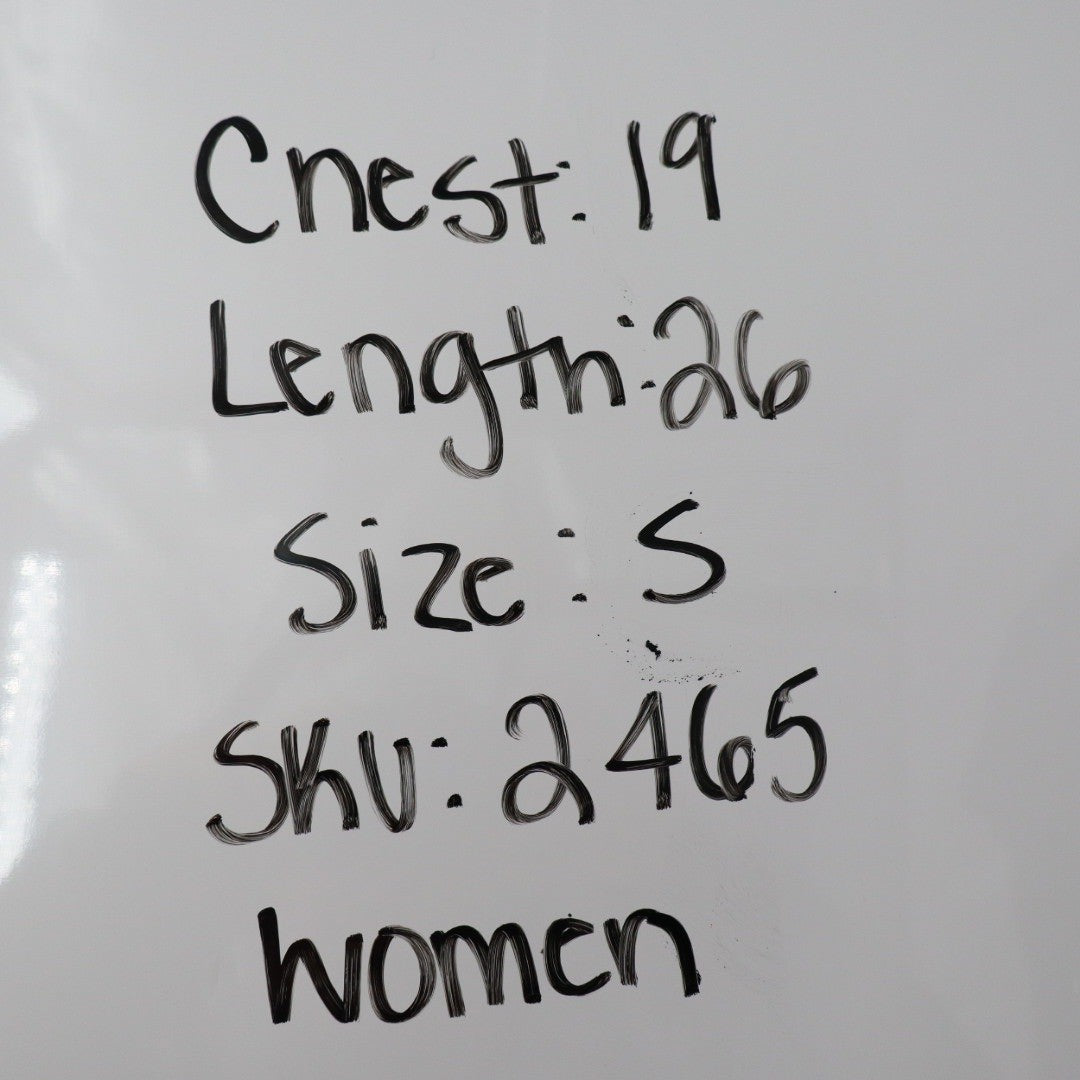 Chest: 19
Length: 26
Size: S
SKU: 2465
Women